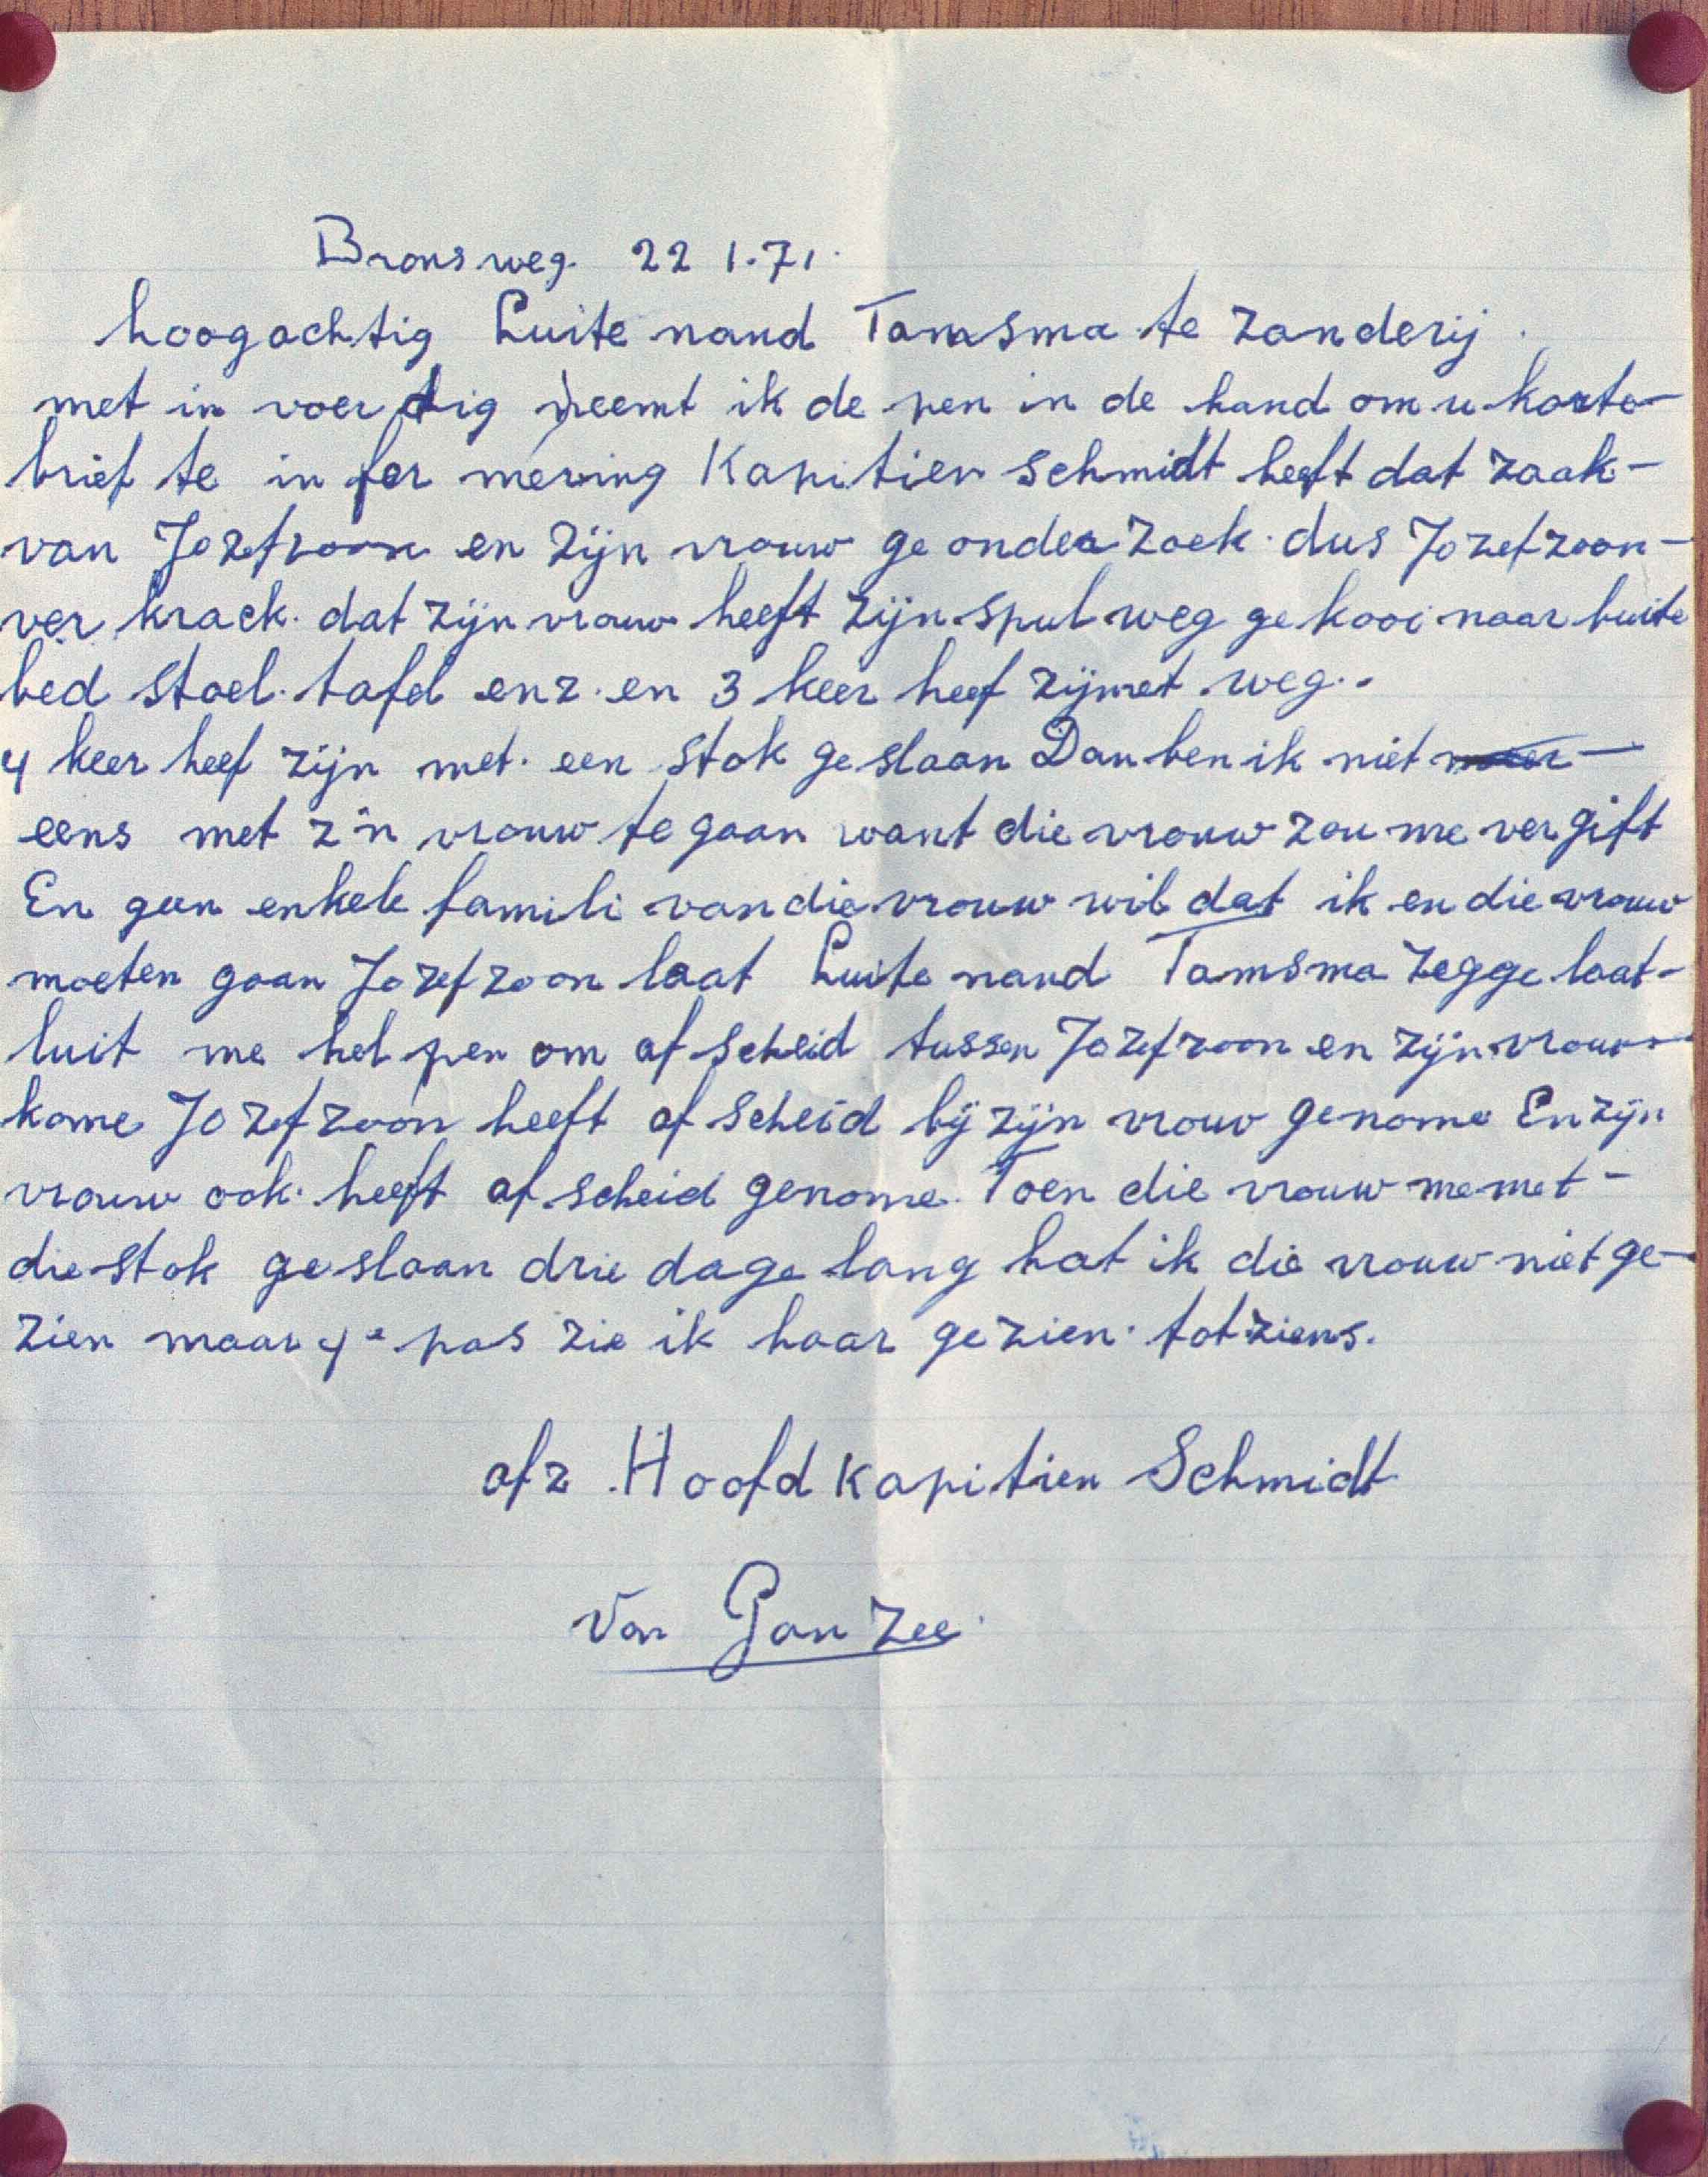 Bronsweg. 22 1.71.
hoogachtig Luite nand Tamsma te Zanderij.
met in voer dig neemt ik de pen in de hand om u korte-
brief te in fer mering Kapitien Schmidt heeft dat zaak-
van Jozefzoon en zijn vrouw ge onder zoek. dus Jozefzoon-
ver krack. dat zijn vrouw heeft zijn spul weg ge kooi naar buite
bed stoel. tafel enz. en 3 keer heef zijmet weg..
4 keer heef zijn met. een stok ge slaan Dan ben ik niet
eens met z'n vrouw te gaan want die vrouw zou me ver gift
En geen enkele famili van die vrouw wil dat ik en die vrouw
moeten gaan Jozef zoon laat Luite nand Tamsma zegge laat-
luit me hel pen om af scheid tussen Jozef zoon en zijn vrouw
kome Jozef zoon heeft af scheid bij zijn vrouw genome En zijn
vrouw ook. heeft af scheid genome. Toen die vrouw me met-
die stok ge slaan drie dage lang hat ik die vrouw niet ge-
zien maar 4e pas zie ik haar ge zien. tot ziens.
afz. Hoofd kapitien Schmidt
Van Gan Zee.